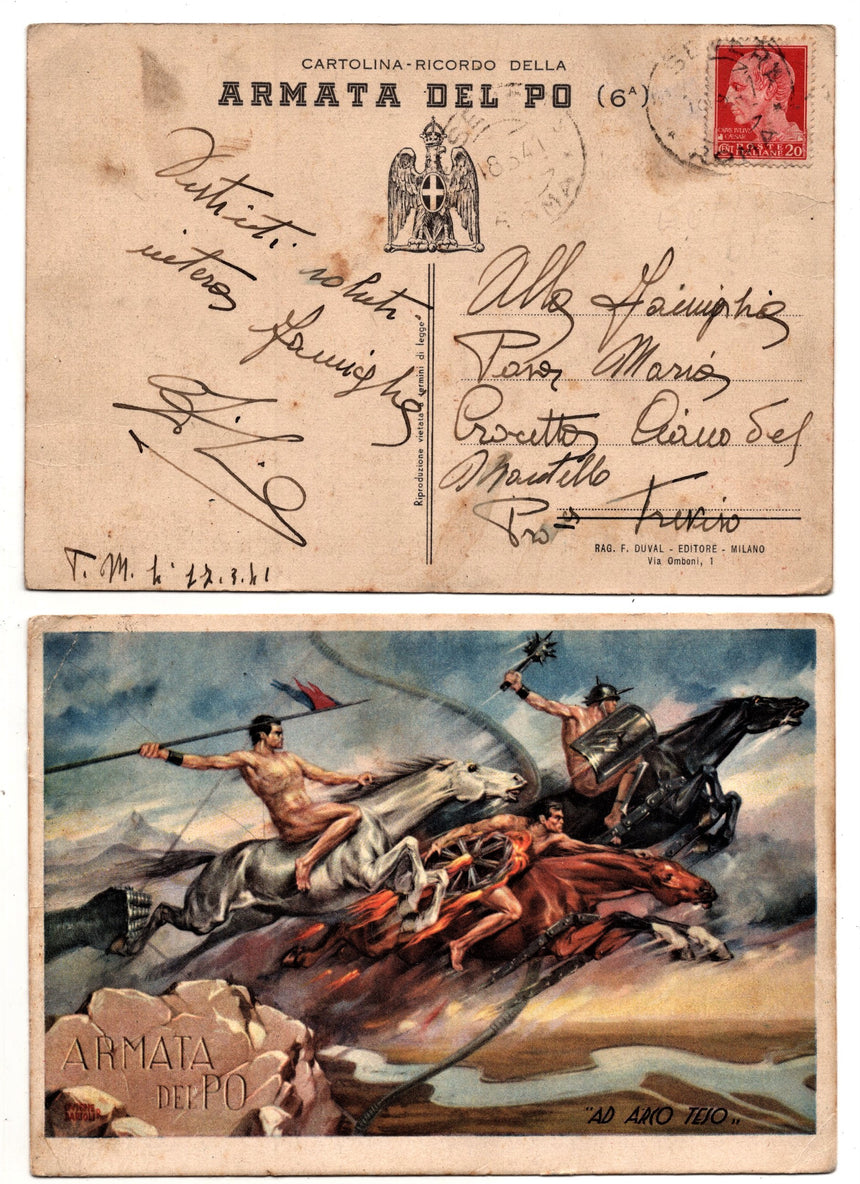 CARTOLINA-RICORDO DELLA
ARMATA DEL PO (6ᴬ)
CAIVS IVLIVS
CAESAR
CENT. POSTE
ITALIANE 20
18.3.41
ROMA
Distinti saluti
intera famiglia
T. M. li 17.3.41
Riproduzione vietata a termini di legge
Alla Famiglia
Maria
Crocetta Ciano del
Montello
Treviso
RAG. F. DUVAL - EDITORE - MILANO
Via Omboni, 1
ARMATA
DEL PO
"AD ARCO TESO„